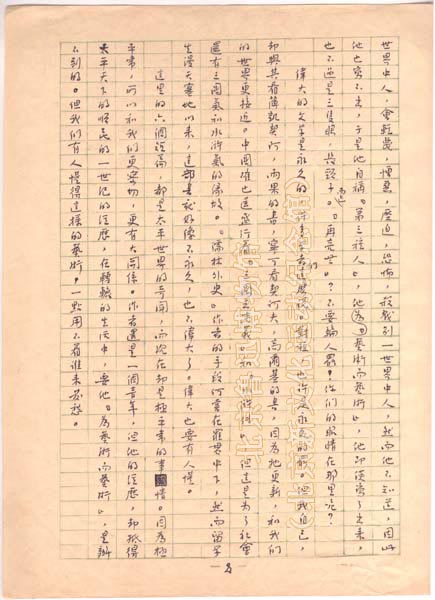 世界中人,會輕蔑,憎惡,壓迫,恐怖,殺戮別一世界中人,然而他不知道,因此
他也寫不出,于是他自稱“第三種人”,他“為藝術而藝術”,他即使寫了出來,
也不過是三隻眼,長頸子而已。“再亮些”?不要騙人罷!你們的眼睛在那里呢?
偉大的文學是永久的,許多學者們這麼說。對啦,也許是永久的罷。但我自己,
卻與其看薄凱契阿,雨果的書,寧可看契訶夫,高爾基的書,因為牠更新,和我們
的世界更接近。中國確也還盛行着《三國志演義》和《水滸傳》,但這是為了社會
還有三國氣和水滸氣的緣故。《儒林外史》作者的手段何嘗在羅貫中下,然而留學
生漫天塞地以來,這部書就好像不永久,也不偉大了。偉大也要有人懂。
這里的六個短篇,都是太平世界的奇聞,而現在卻是極平常的事情。因為極
平常,所以和我們更密切,更有大關係。作者還是一個青年,但他的經歷,卻抵得
太平天下的順民的一世紀的經歷,在轉輾的生活中,要他“為藝術而藝術”,是辦
不到的。但我們有人懂得這樣的藝術,一點用不着誰來發愁。
2
北京鲁迅博物馆
(北京新文化运动纪念馆)